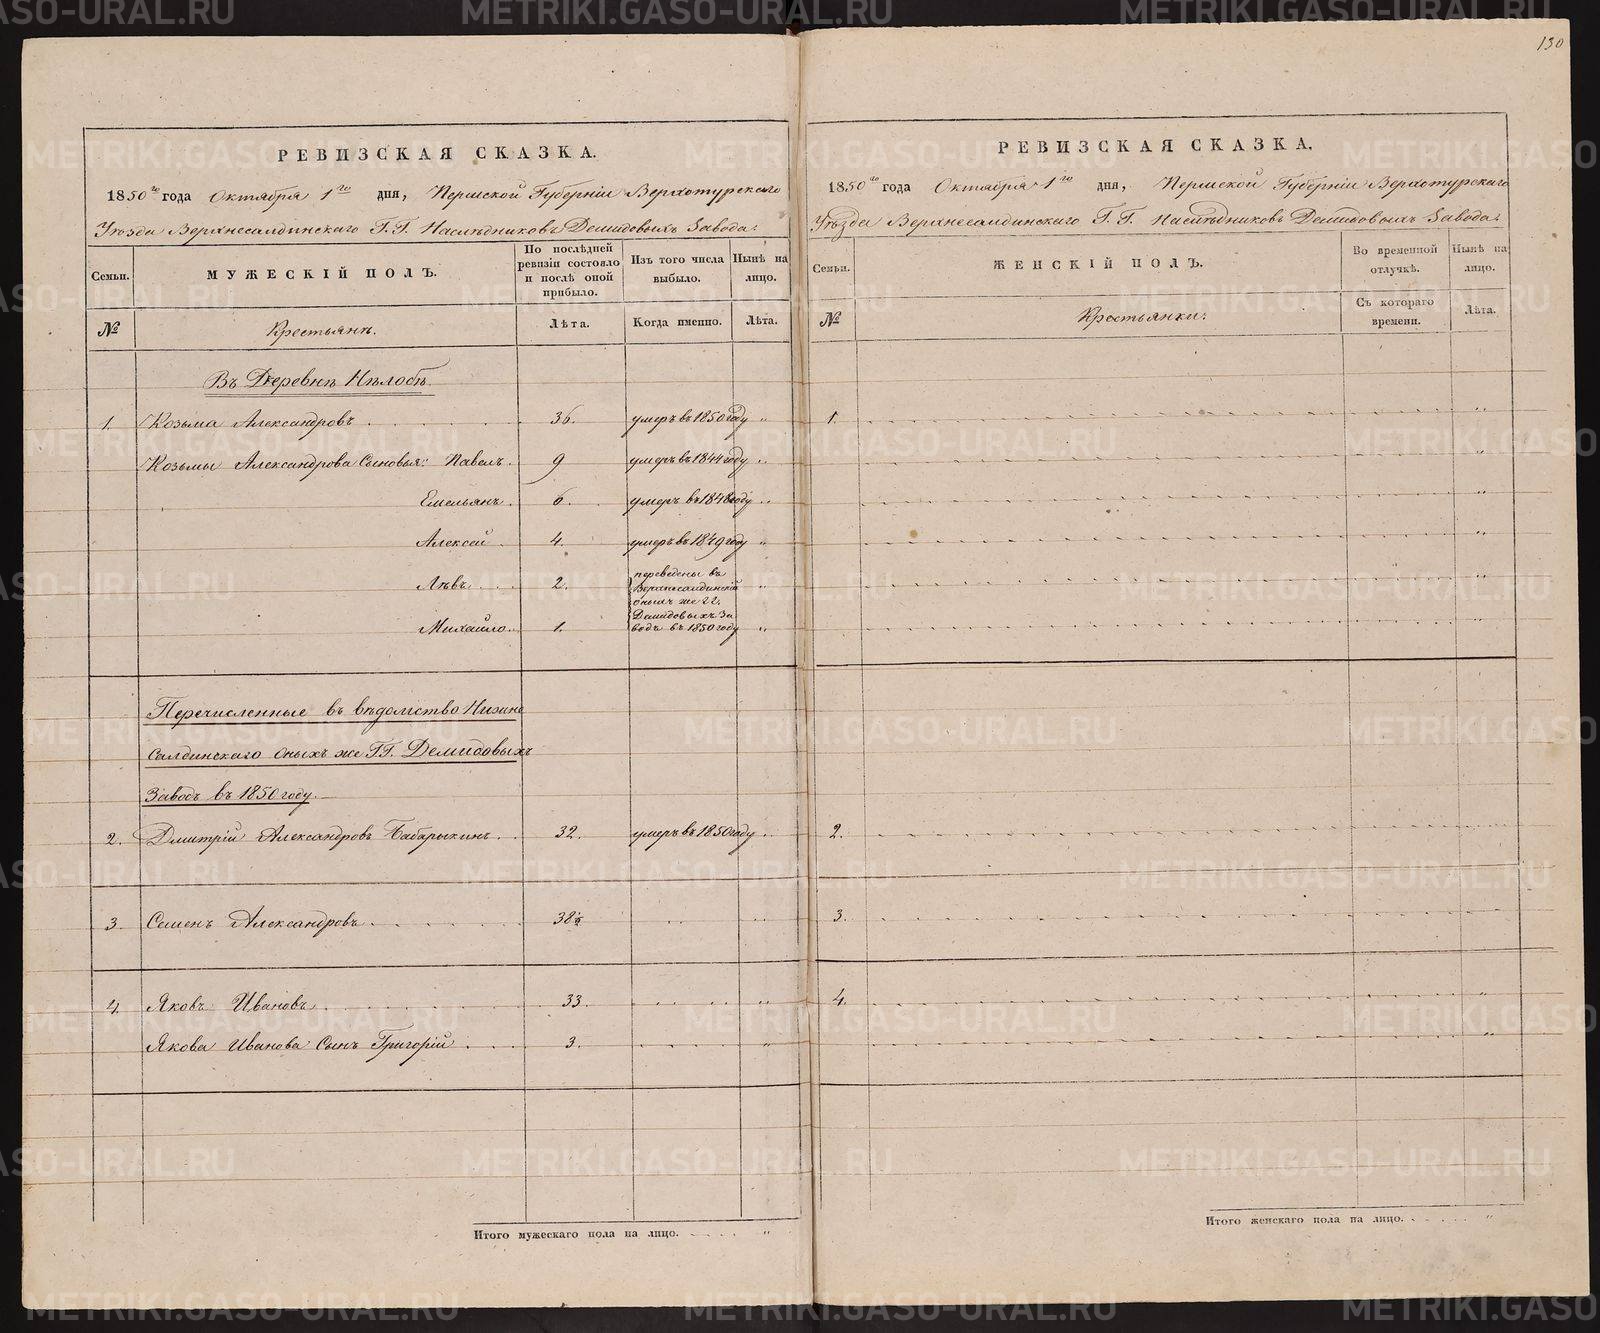 130
РЕВИЗСКАЯ СКАЗКА.
1850го года Октября 1го дня, Пермской Губерніи Верхотурскаго
Уѣзда Верхнесалдинскаго Г.Г. Наслѣдниковъ Демидовыхъ Завода.
Семьи. МУЖЕСКІЙ ПОЛЪ. По послѣдней ревизіи состояло и послѣ оной прибыло. Изъ того числа выбыло. Нынѣ на лицо.
№ Крестьянъ. Лѣта. Когда именно. Лѣта.
Въ Деревнѣ Нѣлобѣ
1. Козьма Александровъ 36. умеръ въ 1850 году „
Козьмы Александрова Сыновья: Павелъ. 9 умеръ въ 1844 году „
Емельянъ. 6. умеръ въ 1848 году „
Алексей 4. умеръ въ 1849 году „
Лѣвъ 2. переведены въ „
Верхнесалдинскій
оныхъ же г.г.
Демидовыхъ За
Михайло. 1. водъ въ 1850 году „
Перечисленные въ вѣдомство Нижне
салдинскаго оныхъ же Г.Г. Демидовыхъ
Завода въ 1850 году.
2. Дмитрій Александровъ Бабарыкинъ. 32. умеръ въ 1850 году
3. Семенъ Александровъ 38½ „
4. Яковъ Ивановъ 33. „
Якова Иванова Сынъ Григорій 3. „
Итого мужескаго пола на лицо. „
РЕВИЗСКАЯ СКАЗКА.
1850го года Октября 1го дня, Пермской Губерніи Верхотурскаго
Уѣзда Верхнесалдинскаго Г.Г. Наслѣдниковъ Демидовыхъ Завода.
Семьи. ЖЕНСКІЙ ПОЛЪ. Во временной отлучкѣ. Нынѣ на лицо.
№ Крестьянки. Съ котораго времени. Лѣта.
1. „
„
„
„
„
„
2. „
3. „
4. „
„
Итого женскаго пола на лицо. „
METRIKI.GASO-URAL.RU